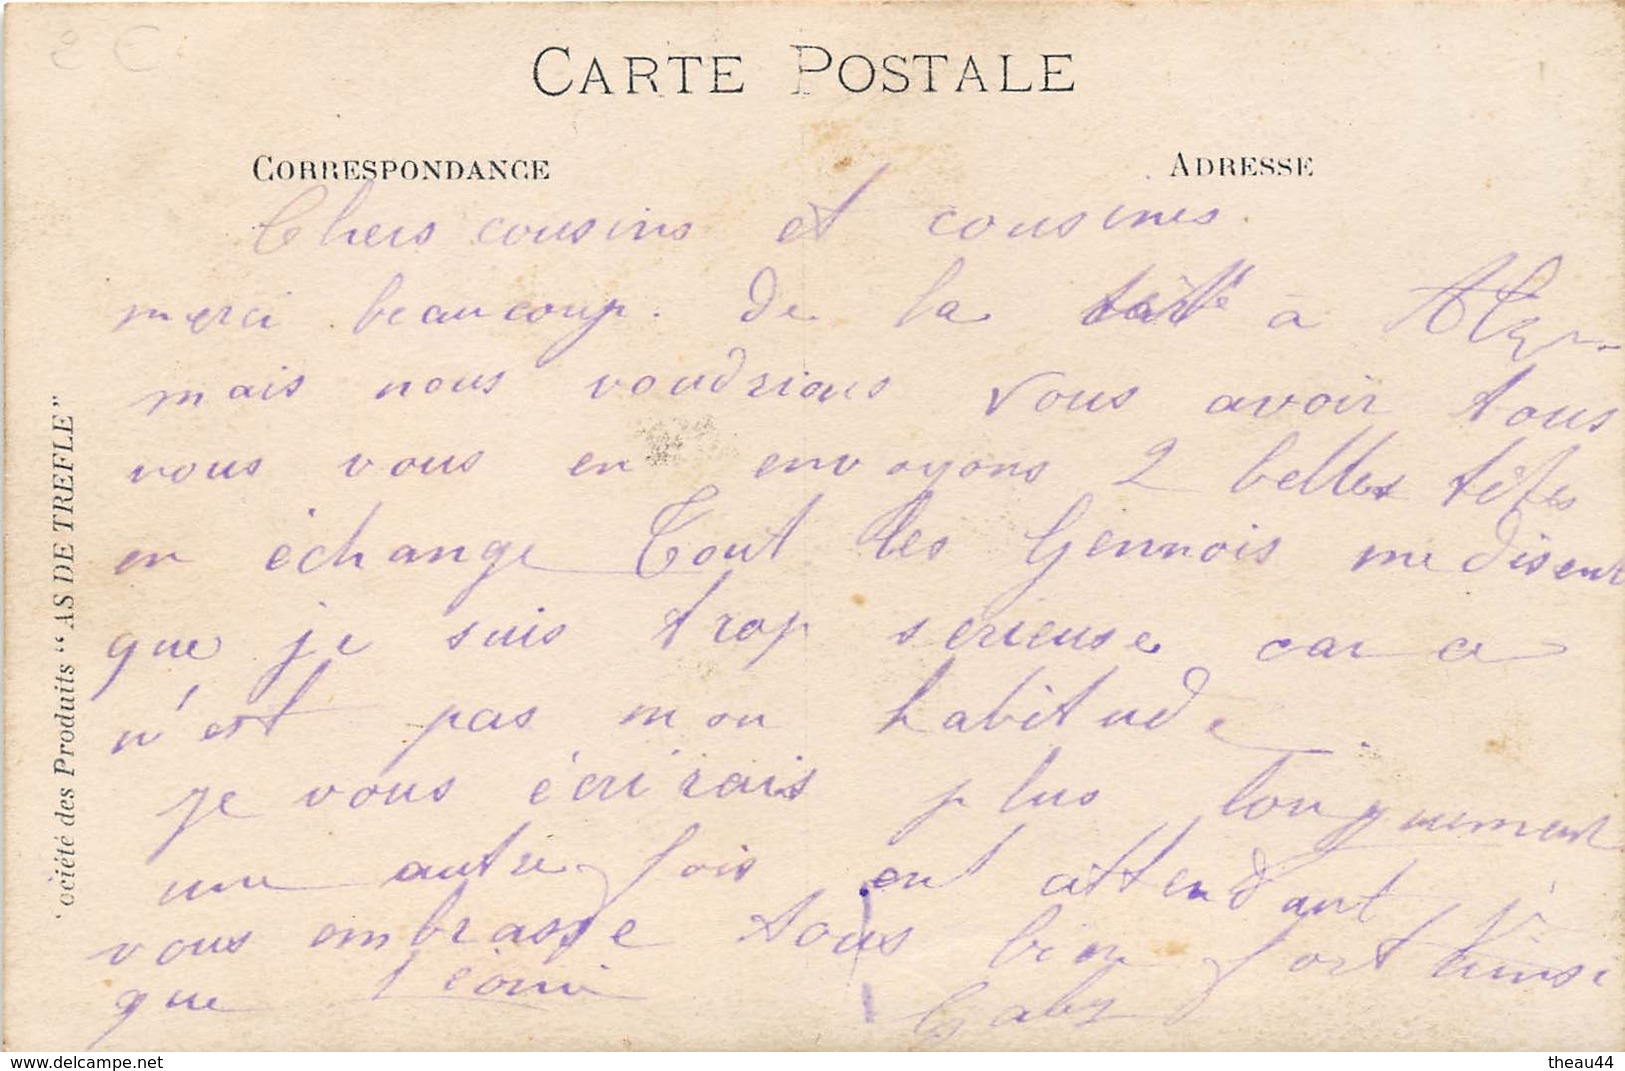 2 €
CARTE POSTALE
CORRESPONDANCE
ADRESSE
Chers cousins et cousines.
merci beaucoup. de la à
mais nous voudrions vous avoir tous
nous vous en envoyons 2 belles têtes
en échange Tout les Gennois me disent
que je suis trop serieuse car ce
n'est pas mon habitude.
je vous écrirais plus longuement
une autre fois ent attendant j
vous embrasse tous bien fort ainsi
que Léonie Gaby
Société des Produits "AS DE TREFLE"
www.delcampe.net
theau44